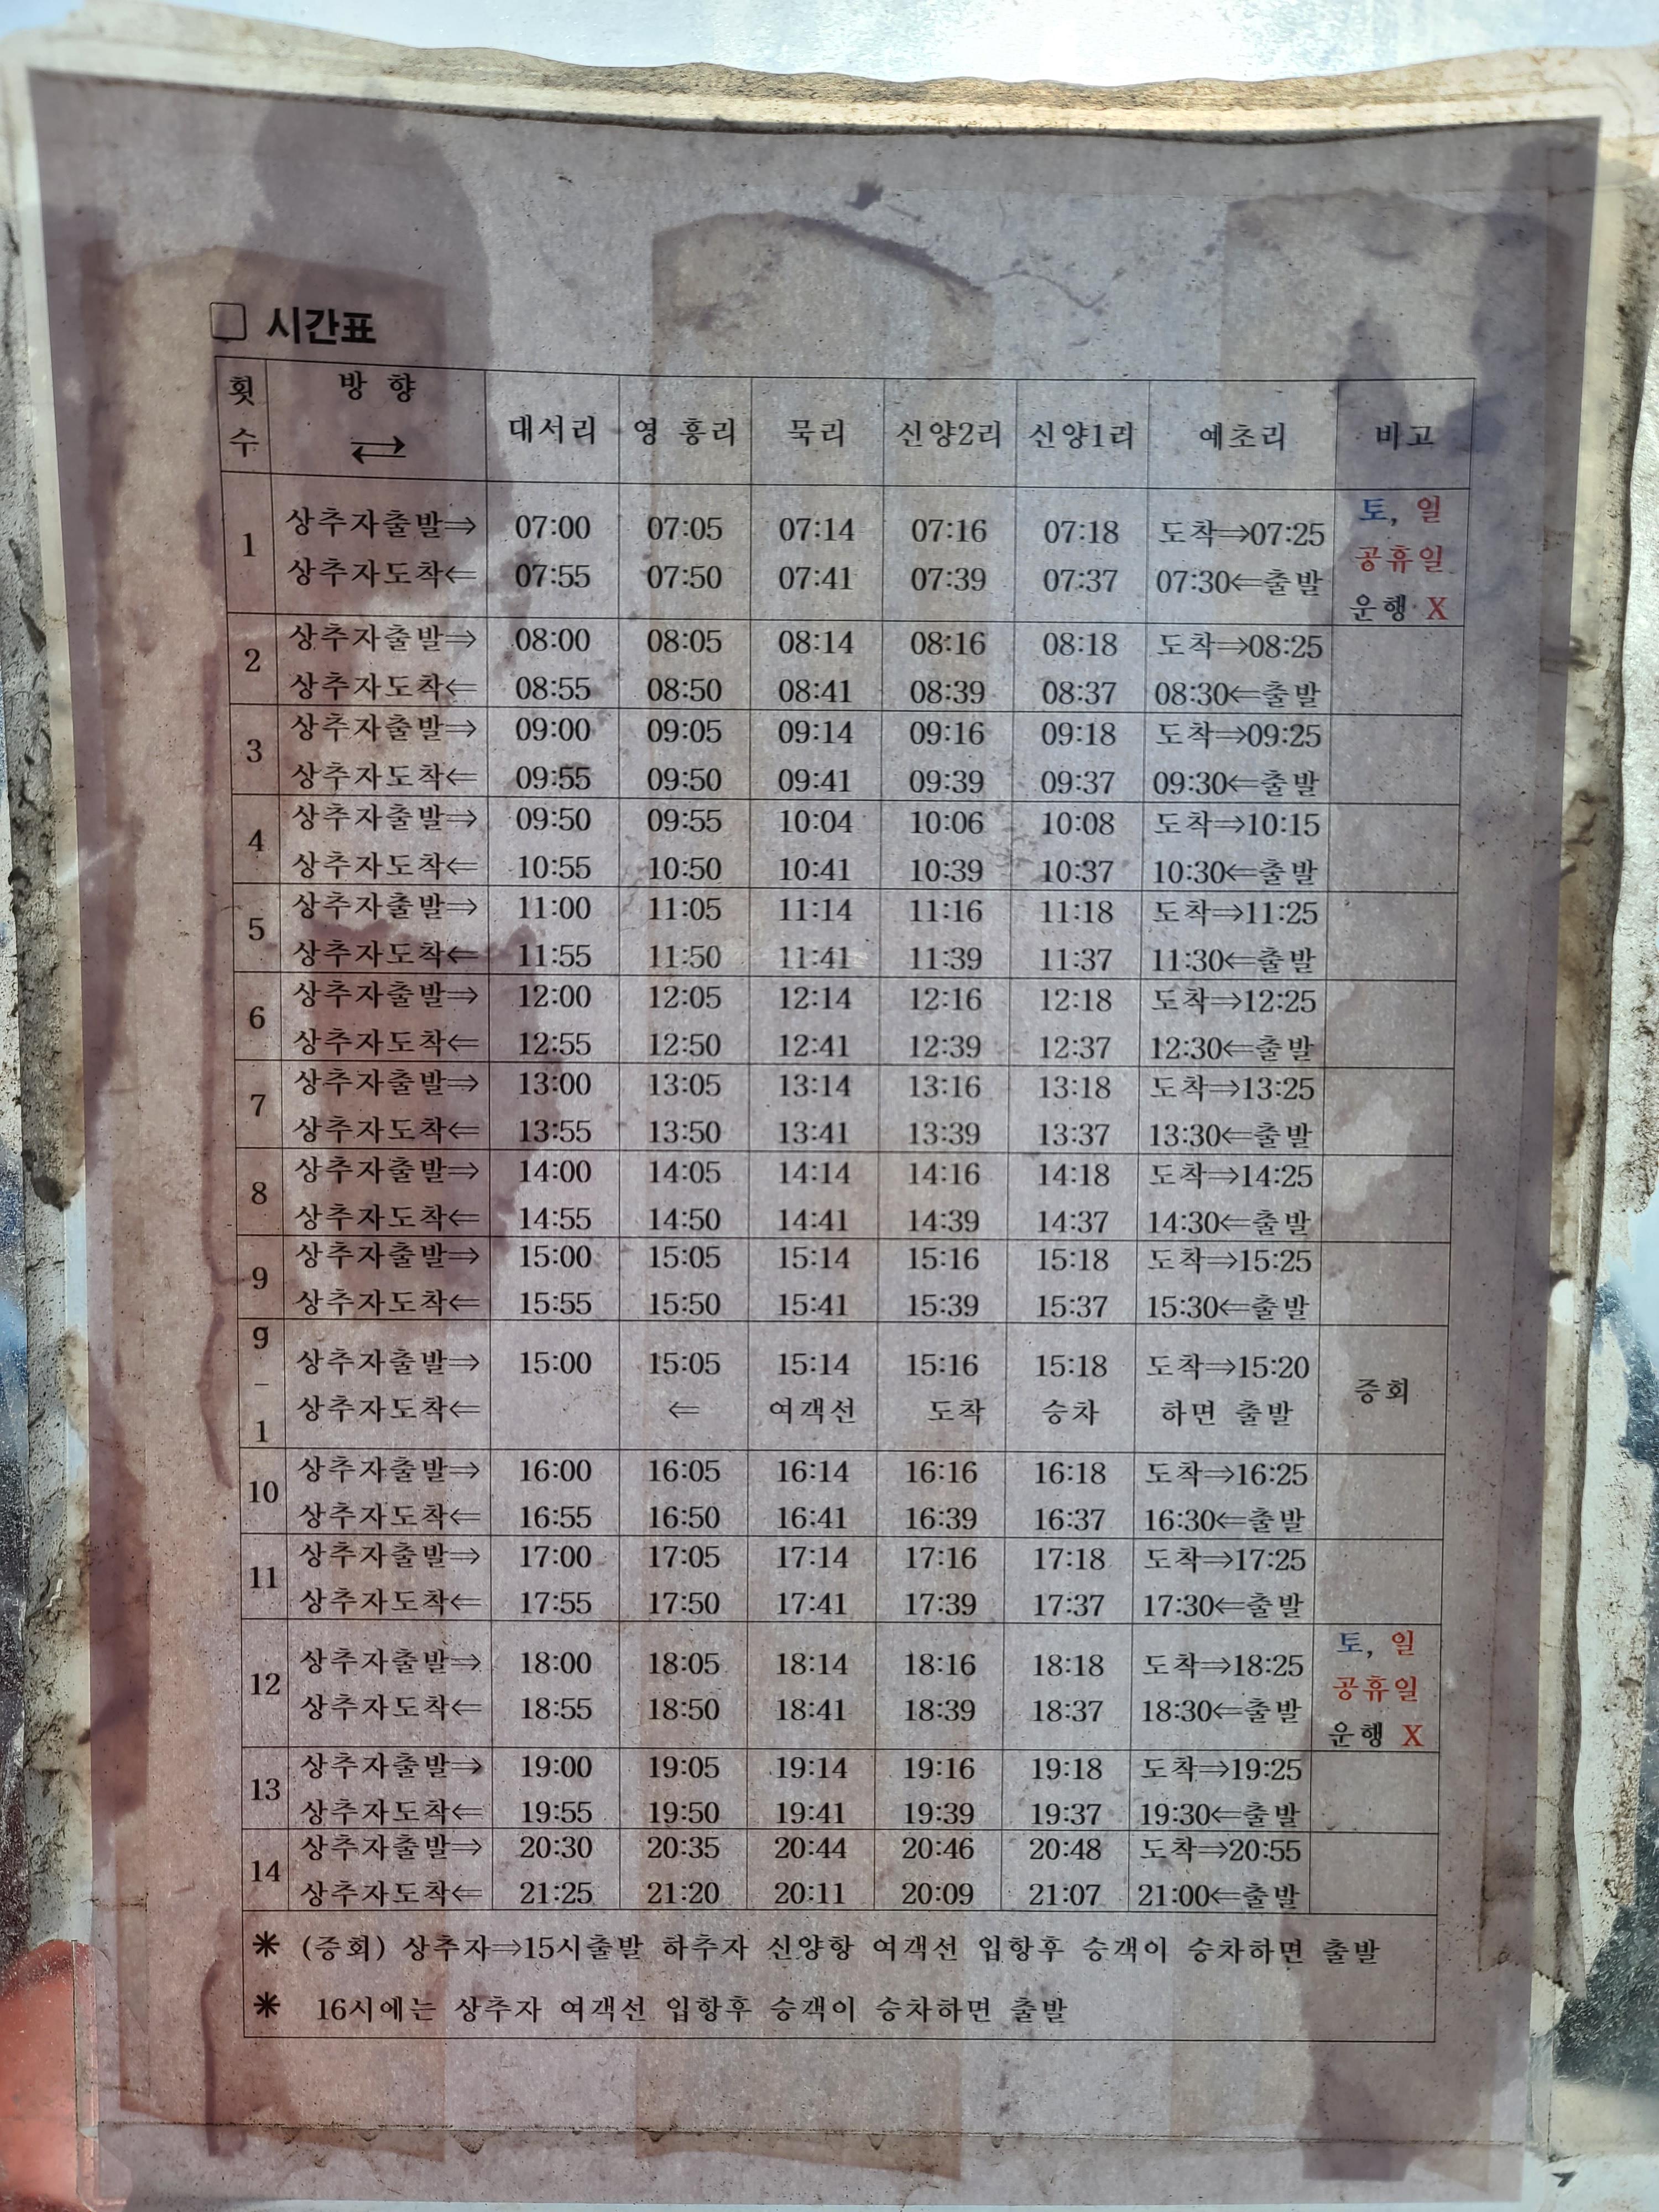 □ 시간표
횟수 방 향 ⇄ 대서리 영 흥리 묵리 신양2리 신양1리 예초리 비고
1 상추자출발⇒ 07:00 07:05 07:14 07:16 07:18 도착⇒07:25 토, 일
상추자도착⇐ 07:55 07:50 07:41 07:39 07:37 07:30⇐출발 공휴일
운행 X
2 상추자출발⇒ 08:00 08:05 08:14 08:16 08:18 도착⇒08:25
상추자도착⇐ 08:55 08:50 08:41 08:39 08:37 08:30⇐출발
3 상추자출발⇒ 09:00 09:05 09:14 09:16 09:18 도착⇒09:25
상추자도착⇐ 09:55 09:50 09:41 09:39 09:37 09:30⇐출발
4 상추자출발⇒ 09:50 09:55 10:04 10:06 10:08 도착⇒10:15
상추자도착⇐ 10:55 10:50 10:41 10:39 10:37 10:30⇐출발
5 상추자출발⇒ 11:00 11:05 11:14 11:16 11:18 도착⇒11:25
상추자도착⇐ 11:55 11:50 11:41 11:39 11:37 11:30⇐출발
6 상추자출발⇒ 12:00 12:05 12:14 12:16 12:18 도착⇒12:25
상추자도착⇐ 12:55 12:50 12:41 12:39 12:37 12:30⇐출발
7 상추자출발⇒ 13:00 13:05 13:14 13:16 13:18 도착⇒13:25
상추자도착⇐ 13:55 13:50 13:41 13:39 13:37 13:30⇐출발
8 상추자출발⇒ 14:00 14:05 14:14 14:16 14:18 도착⇒14:25
상추자도착⇐ 14:55 14:50 14:41 14:39 14:37 14:30⇐출발
9 상추자출발⇒ 15:00 15:05 15:14 15:16 15:18 도착⇒15:25
상추자도착⇐ 15:55 15:50 15:41 15:39 15:37 15:30⇐출발
9-1 상추자출발⇒ 15:00 15:05 15:14 15:16 15:18 도착⇒15:20 증회
상추자도착⇐ ⇐ 여객선 도착 승차 하면 출발
10 상추자출발⇒ 16:00 16:05 16:14 16:16 16:18 도착⇒16:25
상추자도착⇐ 16:55 16:50 16:41 16:39 16:37 16:30⇐출발
11 상추자출발⇒ 17:00 17:05 17:14 17:16 17:18 도착⇒17:25
상추자도착⇐ 17:55 17:50 17:41 17:39 17:37 17:30⇐출발
12 상추자출발⇒ 18:00 18:05 18:14 18:16 18:18 도착⇒18:25 토, 일
상추자도착⇐ 18:55 18:50 18:41 18:39 18:37 18:30⇐출발 공휴일
운행 X
13 상추자출발⇒ 19:00 19:05 19:14 19:16 19:18 도착⇒19:25
상추자도착⇐ 19:55 19:50 19:41 19:39 19:37 19:30⇐출발
14 상추자출발⇒ 20:30 20:35 20:44 20:46 20:48 도착⇒20:55
상추자도착⇐ 21:25 21:20 20:11 20:09 21:07 21:00⇐출발
* (증회) 상추자⇒15시출발 하추자 신양항 여객선 입항후 승객이 승차하면 출발
* 16시에는 상추자 여객선 입항후 승객이 승차하면 출발